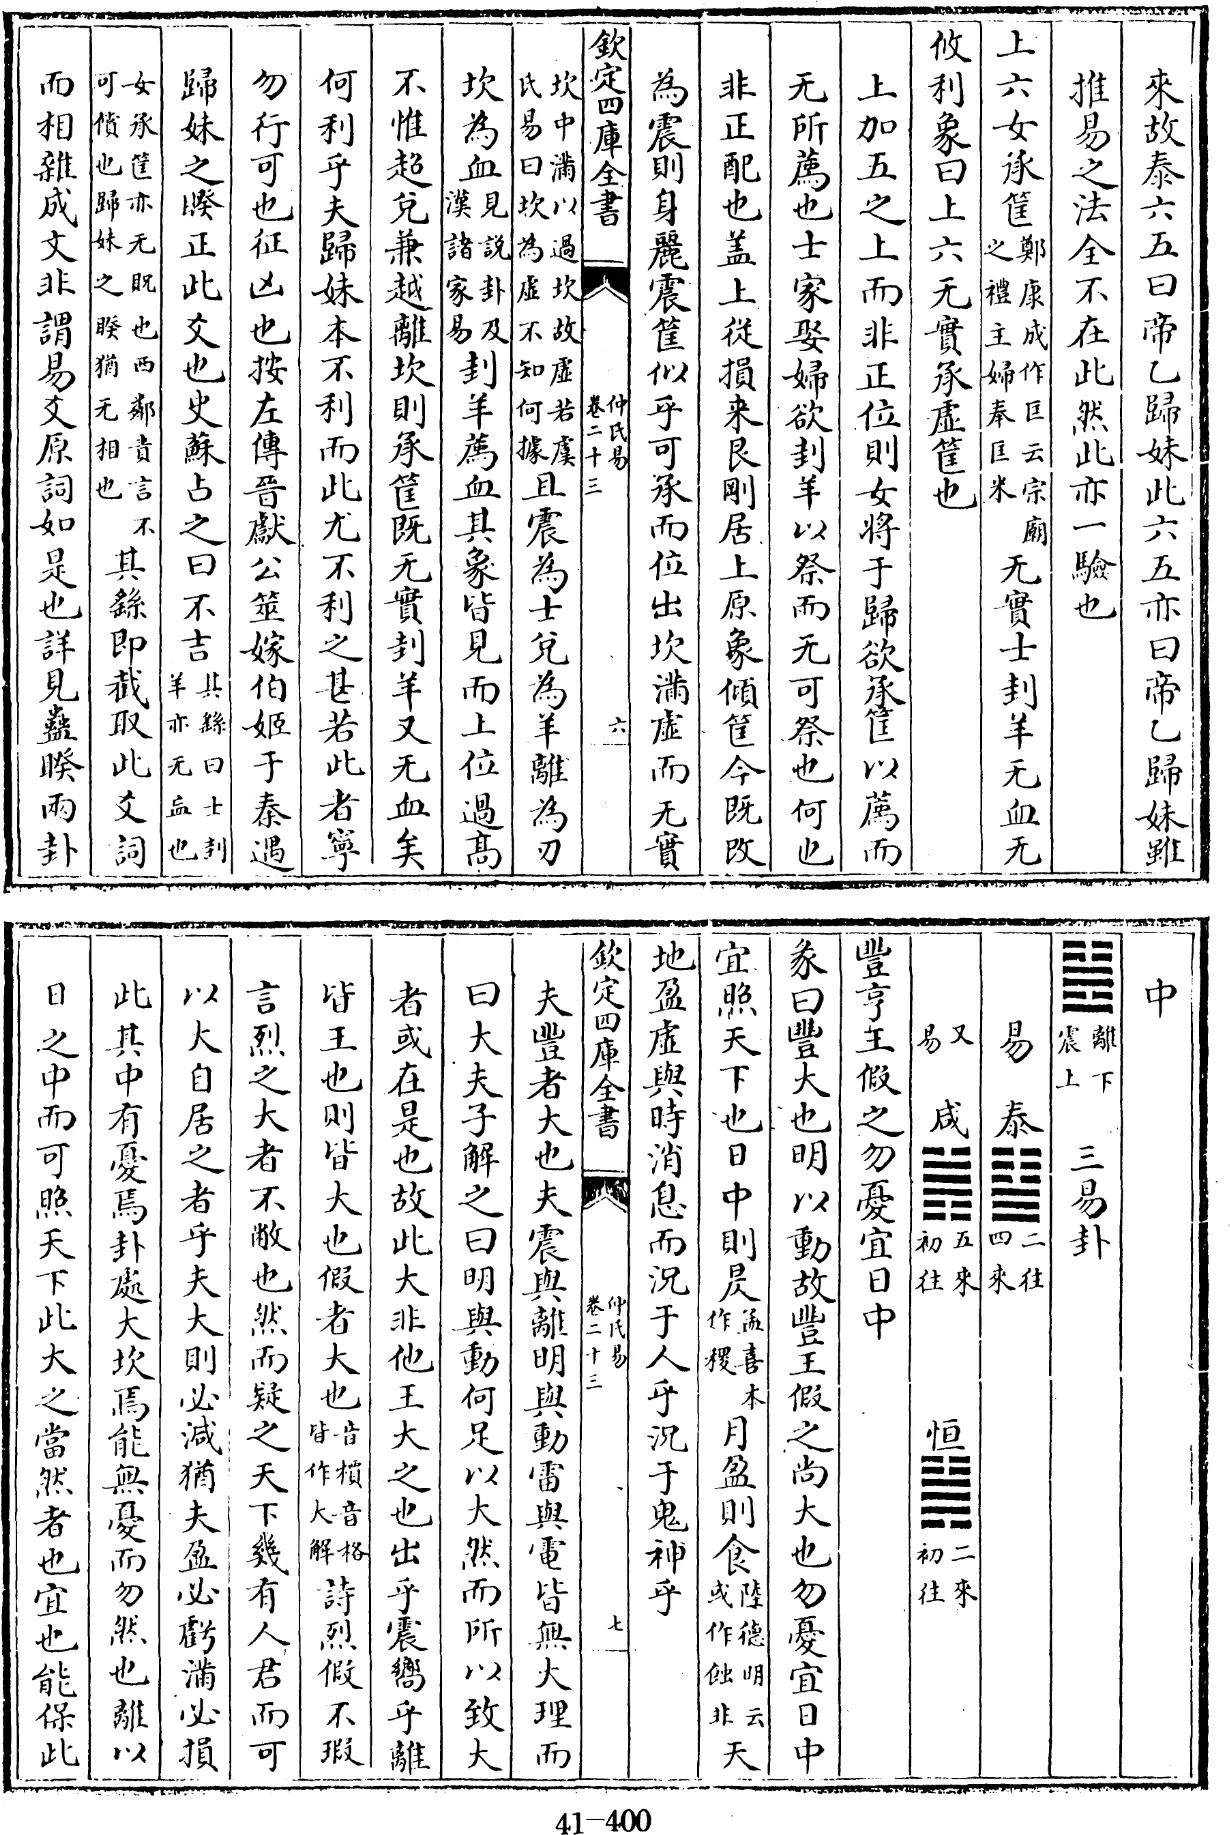 來故泰六五曰帝乙歸妹此六五亦曰帝乙歸妹雖
推易之法全不在此然此亦一驗也
上六女承筐鄭康成作匡云宗廟之禮主婦奉匡米无實士刲羊无血无
攸利象曰上六无實承虛筐也
上加五之上而非正位則女將于歸欲承筐以薦而
无所薦也士家娶婦欲刲羊以祭而无可祭也何也
非正配也蓋上從損来艮剛居上原象傾筐今既改
為震則身麗震筐似乎可承而位出坎滿虛而无實
欽定四庫全書
仲氏易
卷二十三
六
坎中滿以過坎故虛若虞氏易曰坎為虛不知何據且震為士兌為羊離為刃
坎為血見說卦及漢諸家易刲羊薦血其象皆見而上位過髙
不惟超兌兼越離坎則承筐既无實刲羊又无血矣
何利乎夫歸妹本不利而此尤不利之甚若此者寧
勿行可也征凶也按左傳晉獻公筮嫁伯姬于秦遇
歸妹之睽正此爻也史蘇占之曰不吉其繇曰士刲羊亦无衁也
女承筐亦无貺也西鄰責言不可償也歸妹之睽猶无相也其繇即截取此爻詞
而相雜成文非謂易爻原詞如是也詳見蠱睽兩卦
中
離下震上 三易卦
易 泰 二往四來
又易 咸 五來初往 恒 二來初往
豐亨王假之勿憂宜日中
彖曰豐大也明以動故豐王假之尚大也勿憂宜日中
宜照天下也日中則昃孟喜本作稷月盈則食陸德明云或作蝕非天
地盈虛與時消息而況于人乎況于鬼神乎
欽定四庫全書
仲氏易
卷二十三
七
夫豐者大也夫震與離明與動雷與電皆無大理而
曰大夫子解之曰明與動何足以大然而所以致大
者或在是也故此大非他王大之也出乎震嚮乎離
皆王也則皆大也假者大也音檟音格皆作大解詩烈假不瑕
言烈之大者不敝也然而疑之天下幾有人君而可
以大自居之者乎夫大則必減猶夫盈必虧滿必損
此其中有憂焉卦處大坎焉能無憂而勿然也離以
日之中而可照天下此大之當然者也宜也能保此
41-400